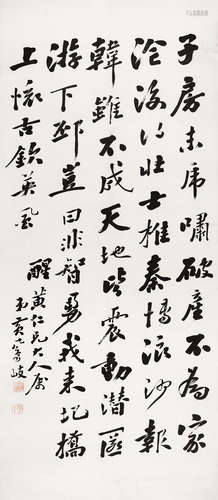 子房未虎嘯破產不為家
滄海得壯士椎秦博浪沙報
韓雖不成天地皆震動潛匿
游下邳豈曰非智勇我來圯橋
上懷古欽英風
醒黃仁兄大人屬